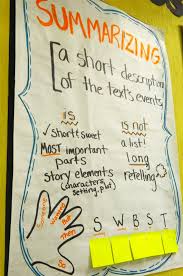 SUMMARIZING
[a short description
of the text's events
is
is not
✓short & sweet
a list!
MOST important
parts
long
story elements
(characters,
setting, plot)
retelling
Someone
Wanted
But
Then
So
S W B S T